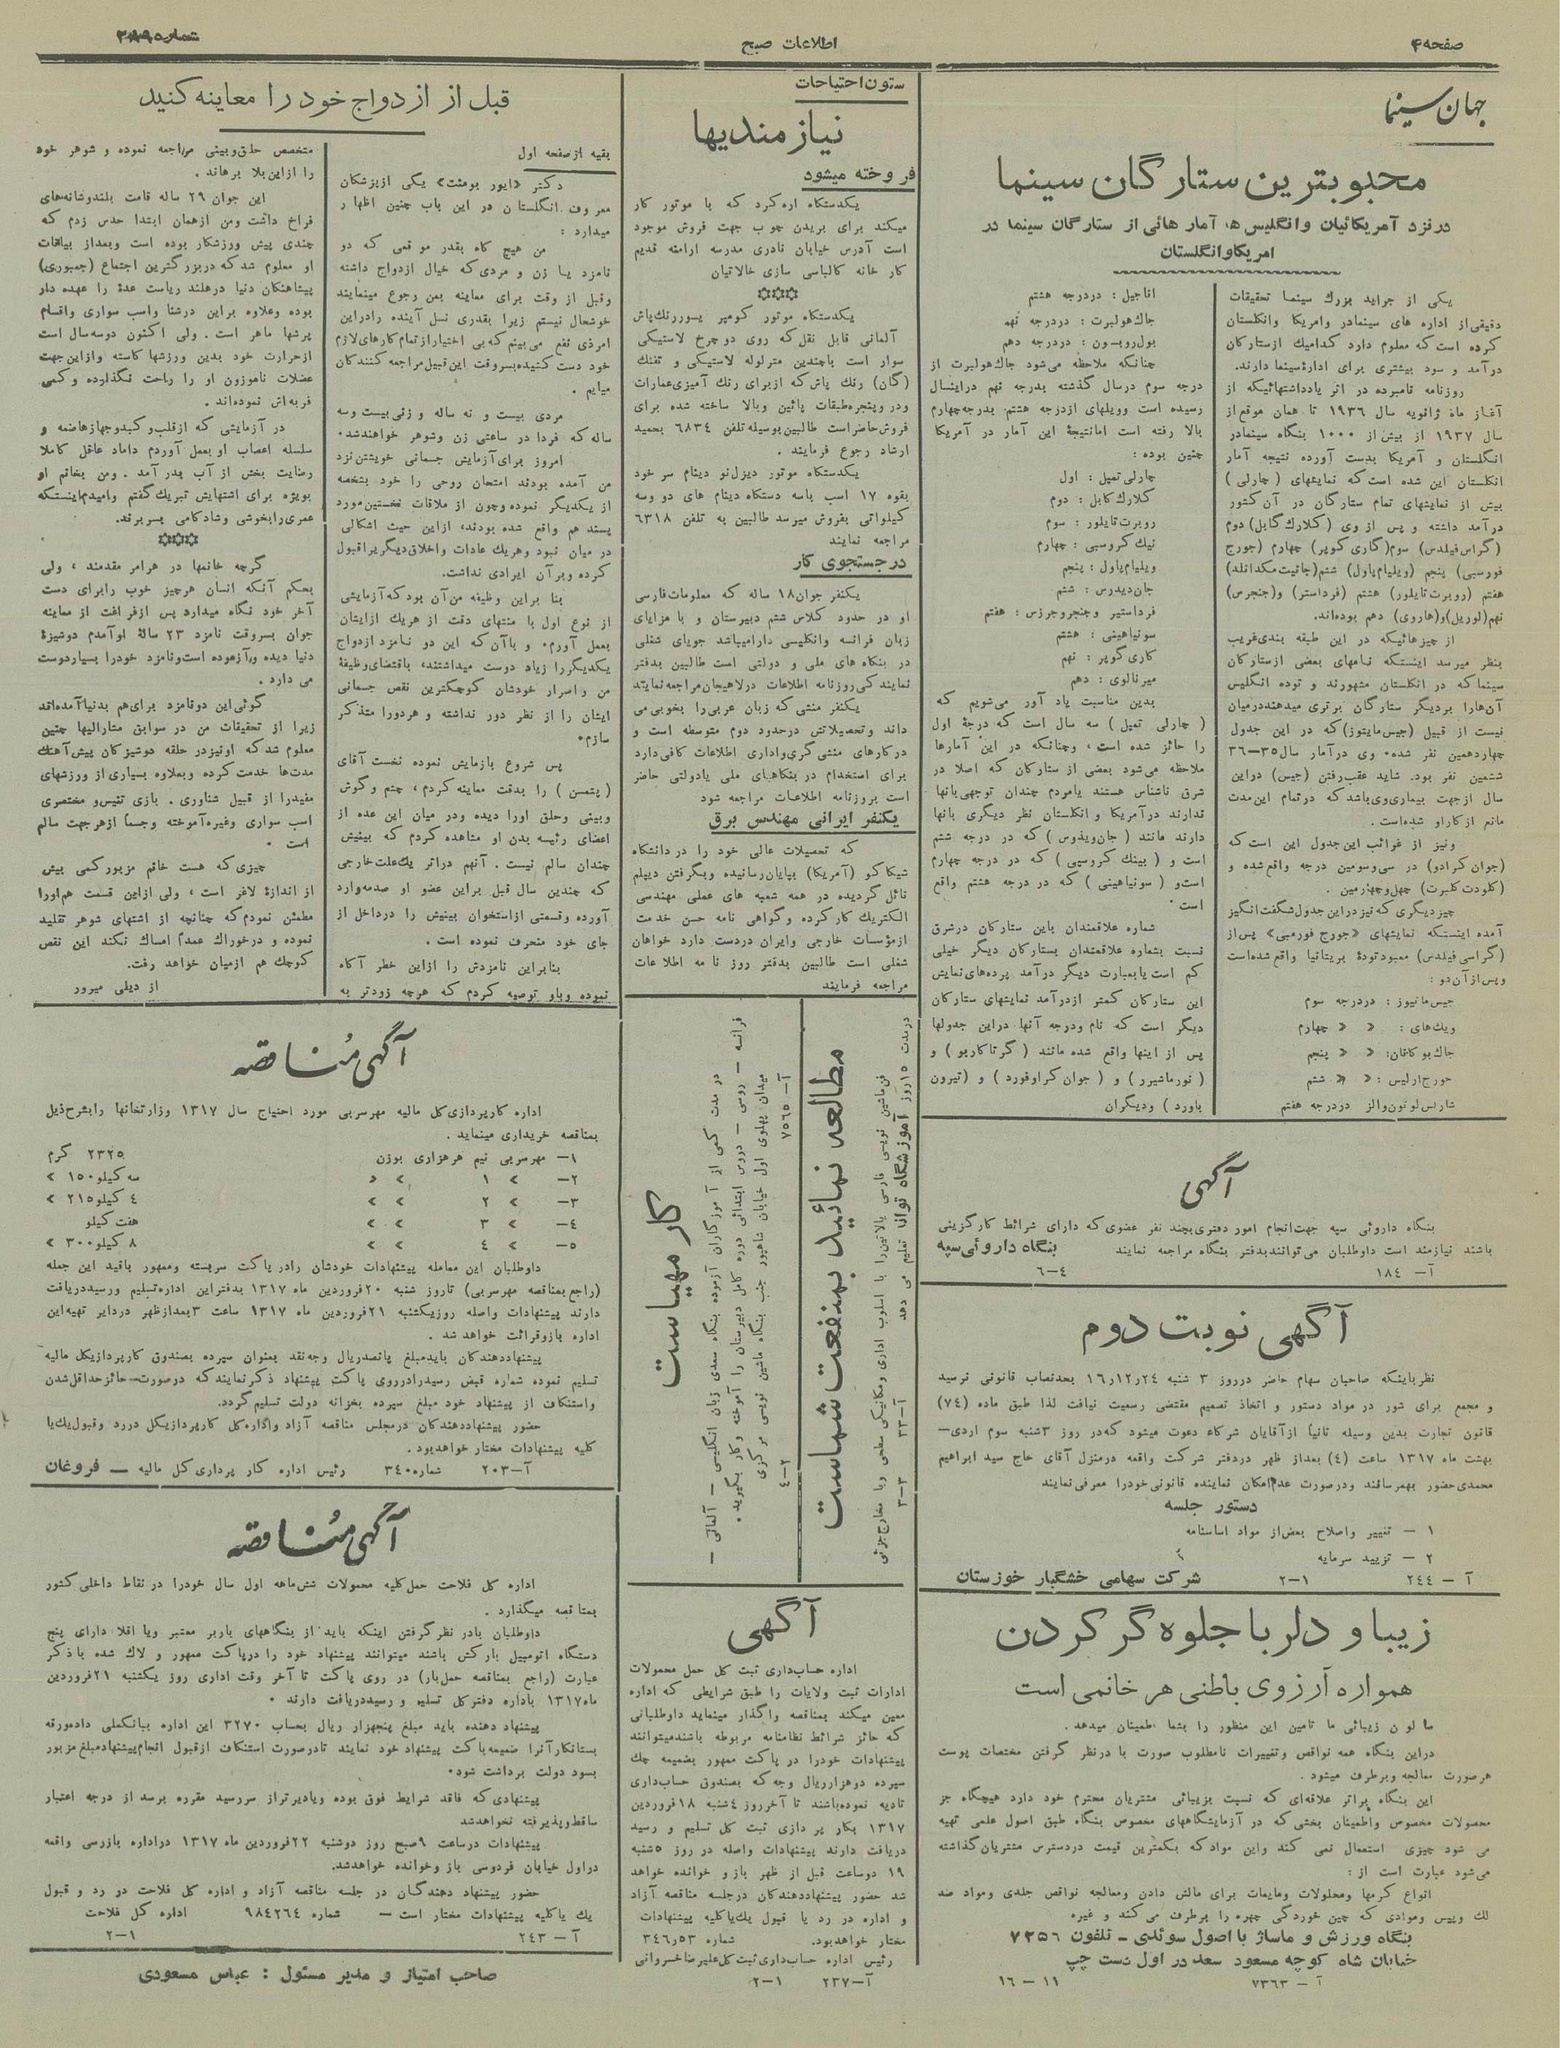 صفحه۴
اطلاعات صبح
شماره۲۸۹۹
جهان سینما
محبوبترین ستارگان سینما
در نزد آمریکائیان وانگلیس ها، آمار هائی از ستارگان سینما در
امریکا وانگلستان
یکی از جراید بزرك سینما تحقیقات
دقیقی از اداره های سینمادر وامریکا وانگلستان
کرده است که معلوم دارد کدامیك از ستارگان
درآمد و سود بیشتری برای ادارۀ سینما دارند.
روزنامه نامبرده در اثر یادداشتهائیکه از
آغاز ماه ژانویه سال ۱۹۳۶ تا همان موقع از
سال ۱۹۳۷ از بیش از ۱۰۰۰ بنگاه سینمادر
انگلستان و آمریکا بدست آورده نتیجه آمار
انگلستان این شده است که نمایشهای ( چارلی )
بیش از نمایشهای تمام ستارگان در آن کشور
درآمد داشته و پس از وی (کلارك گابل) دوم
(گراس فیلدس) سوم (گاری کوپر) چهارم (جورج
فورسبی) پنجم (ویلیام پاول) ششم (جانیت مکدانلد)
هفتم (روبرت تایلور) هشتم (فرداستر) و(جنجرس)
نهم (لوریل) و(هاردی) دهم بوده‌اند.
از چیز هائیکه در این طبقه بندی غریب
بنظر میرسد اینستکه نامهای بعضی از ستارگان
سینما که در انگلستان مشهورند و توده انگلیس
آن‌هارا بردیگر ستارگان برتری میدهند درمیان
نیست از قبیل (جیس مایتوز) که در این جدول
چهاردهمین نفر شده. وی در آمار سال ۳۵–۳۶
ششمین نفر بود. شاید عقب رفتن (جیس) دراین
سال از جهت بیماری وی باشد که در تمام این مدت
مانع از کار او شده است.
ونیز از غرائب این جدول این است که
(جوان کرادو) در سی وسومین درجه واقع شده و
(کلودت کلبرت) چهل وچهارمین .
چیز دیگری که نیز در این جدول شگفت انگیز
آمده اینستکه نمایشهای «جورج فورمبی» پس از
(گراسی فیلدس) معبود تودۀ بریتانیا واقع شده است
وپس از آن دو :
جیس ماتیوز : دردرجه سوم
ویك‌های : « « چهارم
جاك بوکانان: « « پنجم
جورج ارلیس : « « ششم
شارلس لوتون والز دردرجه هفتم
اناجیل : دردرجه هشتم
جاك هولبرت : دردرجه نهم
پول روبسون : دردرجه دهم
چنانکه ملاحظه می‌شود جاك هولبرت از
درجه سوم درسال گذشته بدرجه نهم دراینسال
رسیده است وویلهای ازدرجه هشتم بدرجه چهارم
بالا رفته است اما نتیجۀ این آمار در آمریکا
چنین بوده :
چارلی تمپل : اول
کلارك کابل : دوم
روبرت تایلور : سوم
نیك کروسبی : چهارم
ویلیام پاول : پنجم
جان دیدرس : ششم
فرداستیر وجنجروجرزس : هفتم
سونیاهینی : هشتم
کاری کوپر : نهم
میرنالوی : دهم
بدین مناسبت یاد آور می‌شویم که
( چارلی تمپل ) سه سال است که درجۀ اول
را حائز شده است ، وچنانکه در این آمارها
ملاحظه می‌شود بعضی از ستارگان که اصلا در
شرق ناشناس هستند یامردم چندان توجهی بانها
ندارند در آمریکا و انگلستان نظر دیگری بانها
دارند مانند ( جان ویذوس ) که در درجه ششم
است و ( بینك کروسبی ) که در درجه چهارم
است و ( سونیاهینی ) که در درجه هشتم واقع
است .
شماره علاقمندان باین ستارگان درشرق
نسبت بشماره علاقمندان بستارگان دیگر خیلی
کم است یا بعبارت دیگر درآمد پرده‌های نمایش
این ستارگان کمتر از درآمد نمایشهای ستارگان
دیگر است که نام ودرجه آنها دراین جدولها
پس از اینها واقع شده مانند ( گرتاکاربو ) و
( نورماشیرر ) و ( جوان کراوفورد ) و (تیرون
باورد ) ودیگران
آگهی
بنگاه داروئی سپه جهت انجام امور دفتری بچند نفر عضوی که دارای شرائط کار گزینی
باشند نیازمند است داوطلبان می‌توانند بدفتر بنگاه مراجعه نمایند بنگاه داروئی سپه
آ- ۱۸۴ ۴–۶
آگهی نوبت دوم
نظر باینکه صاحبان سهام حاضر درروز ۳ شنبه ۱۶٫۱۲٫۲۴ بحد نصاب قانونی نرسید
و مجمع برای شور در مواد دستور و اتخاذ تصمیم مقتضی رسمیت نیافت لذا طبق ماده (۷۴)
قانون تجارت بدین وسیله ثانیاً از آقایان شرکاء دعوت میشود که در روز ۳شنبه سوم اردی–
بهشت ماه ۱۳۱۷ ساعت (۴) بعداز ظهر دردفتر شرکت واقعه درمنزل آقای حاج سید ابراهیم
محمدی حضور بهمرسانند ودرصورت عدم امکان نماینده قانونی خودرا معرفی نمایند
دستور جلسه
۱ – تغییر واصلاح بعض از مواد اساسنامه
۲ – تزیید سرمایه
آ – ۲۴۴ ۱–۲ شرکت سهامی خشگبار خوزستان
زیبا و دلربا جلوه گر کردن
همواره آرزوی باطنی هر خانمی است
سالون زیبائی ما تامین این منظور را بشما اطمینان میدهد.
دراین بنگاه همه نواقص وتغییرات نامطلوب صورت با درنظر گرفتن مختصات پوست
هر صورت معالجه وبرطرف میشود .
این بنگاه براثر علاقه‌ای که نسبت بزیبائی مشتریان محترم خود دارد هیچگاه جز
محصولات مخصوص واطمینان بخشی که در آزمایشگاههای مخصوص بنگاه طبق اصول علمی تهیه
می شود چیزی استعمال نمی کند واین مواد که بکمترین قیمت دردسترس مشتریان گذاشته
می‌شود عبارت است از :
انواع کرمها ومحلولات ومایعات برای مالش دادن ومعالجه نواقص جلدی ومواد ضد
لك وپیس وموادی که چین خوردگی چهره را برطرف می‌کند و غیره
بنگاه ورزش و ماساژ با اصول سوئدی – تلفون ۷۲۵۶
خیابان شاه کوچه مسعود سعد در اول دست چپ
آ – ۷۳۶۳ ۱۱ – ۱۶
ستون احتیاجات
نیازمندیها
فروخته میشود
یکدستگاه اره گرد که با موتور کار
میکند برای بریدن چوب جهت فروش موجود
است آدرس خیابان نادری مدرسه ارامنه قدیم
کار خانه کالباسی سازی خالاتیان
یکدستگاه موتور کومپر یسوررنك پاش
آلمانی قابل نقل که روی دو چرخ لاستیکی
سوار است باچندین مترلوله لاستیکی و تفنك
(گان) رنك پاش که ازبرای رنك آمیزی عمارات
ودروپنجره طبقات پائین وبالا ساخته شده برای
فروش حاضراست طالبین بوسیله تلفن ۶۸۳۴ بحمید
ارشاد رجوع فرمایند .
یکدستگاه موتور دیزل نو دینام سر خود
بقوه ۱۷ اسب باسه دستگاه دینام های دو وسه
کیلواتی بفروش میرسد طالبین به تلفن ۶۳۱۸
مراجعه نمایند
درجستجوی کار
یکنفر جوان ۱۸ ساله که معلومات فارسی
او در حدود کلاس ششم دبیرستان و با مزایای
زبان فرانسه وانگلیسی دارا میباشد جویای شغلی
در بنگاه های ملی و دولتی است طالبین بدفتر
نمایندگی روزنامه اطلاعات درلاهیجان مراجعه نمایند
یکنفر منشی که زبان عربی را بخوبی می
داند وتحصیلاتش درحدود دوم متوسطه است و
درکارهای منشی گری واداری اطلاعات کافی دارد
برای استخدام در بنگاههای ملی یادولتی حاضر
است بروزنامه اطلاعات مراجعه شود
یکنفر ایرانی مهندس برق
که تحصیلات عالی خود را در دانشگاه
شیکاگو (آمریکا) بپایان رسانیده وبگرفتن دیپلم
نائل گردیده در همه شعبه های عملی مهندسی
الکتریك کار کرده وگواهی نامه حسن خدمت
ازمؤسسات خارجی وایران دردست دارد خواهان
شغلی است طالبین بدفتر روز نامه اطلاعات
مراجعه فرمایند
در مدت ۱۵ روز آموزشگاه توانا تعلیم می دهد
فن ماشین نویسی فارسی یالاتین را با اسلوب اداری ومکانیکی سطحی وبا مخارج جزئی
آ–۳۳ ۳–۳
مطالعه نمائید بمنفعت شماست
کار مهیاست
در مدت کمی از آموزگاران آزموده بنگاه سعدی زبان انگلیسی – آلمانی –
فرانسه – روسی – دروس ابتدائی دوره کامل دبیرستان را آموخته وکار بگیرید .
میدان پهلوی اول خیابان شاهپور جنب بنگاه ماشین نویسی مرکزی
آ–۷۵۶۵ ۲–۴
آگهی
اداره حسابداری ثبت کل حمل محمولات
ادارات ثبت ولایات را طبق شرایطی که اداره
معین میکند بمناقصه واگذار مینماید داوطلبانی
که حائز شرائط نظامنامه مربوطه باشند میتوانند
پیشنهادات خودرا در پاکت ممهور بضمیمه چك
سپرده دوهزارریال وجه که بصندوق حسابداری
تادیه نموده‌باشند تا آخرروز ۴شنبه ۱۸ فروردین
۱۳۱۷ بکار پر دازی ثبت کل تسلیم و رسید
دریافت دارند پیشنهادات واصله در روز ۵شنبه
۱۹ دوساعت قبل از ظهر باز و خوانده خواهد
شد حضور پیشنهاددهندگان درجلسه مناقصه آزاد
و اداره در رد یا قبول یك یا کلیه پیشنهادات
مختار خواهد بود. شماره ۳۴۶٫۵۳
رئیس اداره حسابداری ثبت کل علیرضا خسروانی
آ–۲۳۷ ۱–۲
قبل از ازدواج خود را معاینه کنید
بقیه از صفحه اول
دکتر «ایور بومنت» یکی ازپزشکان
معروف انگلستان در این باب چنین اظهار
میدارد :
من هیچ گاه بقدر موقعی که دو
نامزد یا زن و مردی که خیال ازدواج داشته
وقبل از وقت برای معاینه بمن رجوع مینمایند
خوشحال نیستم زیرا بقدری نسل آینده رادراین
امر ذی نفع می بینم که بی اختیار از تمام کارهای لازم
خود دست کشیده بسروقت این قبیل مراجعه کنندگان
میایم .
مردی بیست و نه ساله و زنی بیست وسه
ساله که فردا در ساعتی زن وشوهر خواهند شد.
امروز برای آزمایش جسمانی خویشتن نزد
من آمده بودند امتحان روحی را خود بشخصه
از یکدیگر نموده وچون از ملاقات نخستین مورد
پسند هم واقع شده بودند، از این حیث اشکالی
در میان نبود وهر یك عادات واخلاق دیگر یرا قبول
کرده وبر آن ایرادی نداشت.
بنا براین وظیفه من آن بود که آزمایشی
از نوع اول با منتهای دقت از هریك ازایشان
بعمل آورم. و باآن که این دو نامزد ازدواج
یکدیگر را زیاد دوست میداشتند، باقتضای وظیفۀ
من واسرار خودشان کوچکترین نقص جسمانی
ایشان را از نظر دور نداشته و هردورا متذکر
سازم.
پس شروع بازمایش نموده نخست آقای
( پتمسن ) را بدقت معاینه کردم ، چشم و گوش
وبینی وحلق اورا دیده ودر میان این عده از
اعضای رئیسه بدن او مشاهده کردم که بینیش
چندان سالم نیست . آنهم دراثر یك علت خارجی
که چندین سال قبل براین عضو او صدمه وارد
آورده وقسمتی از استخوان بینیش را درداخل از
جای خود منحرف نموده است .
بنابراین نامزدش را ازاین خطر آگاه
نموده وباو توصیه کردم که هرچه زودتر به
متخصص حلق وبینی مراجعه نموده و شوهر خود
را ازاین بلا برهاند .
این جوان ۲۹ ساله قامت بلند وشانه‌های
فراخ داشت ومن ازهمان ابتدا حدس زدم که
چندی پیش ورزشکار بوده است وبعداز بیانات
او معلوم شد که دربزرگترین اجتماع (جمبوری)
پیشاهنگان دنیا درهلند ریاست عدۀ را عهده دار
بوده وعلاوه براین درشنا واسب سواری واقسام
پرشها ماهر است . ولی اکنون دوسه سال است
ازحرارت خود بدین ورزشها کاسته وازاین جهت
عضلات ناموزون او را راحت نگذارده و کمی
فربه‌اش نموده‌اند .
در آزمایشی که ازقلب وکبد وجهازهاضمه و
سلسله اعصاب او بعمل آوردم داماد عاقل کاملا
رضایت بخش از آب بدر آمد . ومن بخانم او
بویژه برای اشتهایش تبریك گفتم وامیدم اینستکه
عمری رابخوشی وشادکامی بسر برند.
گرچه خانمها در هرامر مقدمند ، ولی
بحکم آنکه انسان هرچیز خوب رابرای دست
آخر خود نگاه میدارد پس ازفراغت از معاینه
جوان بسروقت نامزد ۲۳ سالۀ او آمدم دوشیزۀ
دنیا دیده وآزموده است ونامزد خودرا بسیاردوست
می دارد .
گوئی این دونامزد برای هم بدنیا آمده‌اند
زیرا از تحقیقات من در سوابق مشارالیها چنین
معلوم شد که اونیز در حلقه دوشیزگان پیش آهنك
مدت‌ها خدمت کرده وبعلاوه بسیاری از ورزشهای
مفید را از قبیل شناوری . بازی تنیس و مختصری
اسب سواری وغیره آموخته وجسماً ازهرجهت سالم
است .
چیزی که هست خانم مزبور کمی بیش
از اندازۀ لاغر است ، ولی ازاین قسمت هم اورا
مطمئن نمودم که چنانچه از اشتهای شوهر تقلید
نموده و درخوراك عمدا امساك نکند این نقص
کوچك هم ازمیان خواهد رفت.
از دیلی میرور
آگهی مناقصه
اداره کارپردازی کل مالیه مهرسربی مورد احتیاج سال ۱۳۱۷ وزارتخانها رابشرح ذیل
بمناقصه خریداری مینماید .
۱– مهرسربی نیم هرهزاری بوزن ۲۳۲۵ گرم
۲– » ۱ » » سه کیلو۱۵۰ »
۳– » ۲ » » ۴ کیلو۲۱۵ »
۴– » ۳ » » هفت کیلو
۵– » ۴ » » ۸ کیلو۳۰۰ »
داوطلبان این معامله پیشنهادات خودشان رادر پاکت سربسته وممهور باقید این جمله
(راجع بمناقصه مهرسربی) تاروز شنبه ۲۰فروردین ماه ۱۳۱۷ بدفتراین اداره تسلیم ورسید دریافت
دارند پیشنهادات واصله روز یکشنبه ۲۱فروردین ماه ۱۳۱۷ ساعت ۳بعدازظهر دردایر تهیه این
اداره باز وقرائت خواهد شد .
پیشنهاددهندگان باید مبلغ پانصدریال وجه نقد بعنوان سپرده بصندوق کارپردازیکل مالیه
تسلیم نموده شماره قبض رسیدرا در روی پاکت پیشنهاد ذکر نمایند که درصورت حائز حداقل شدن
واستنکاف از پیشنهاد خود مبلغ سپرده بخزانه دولت تسلیم گردد.
حضور پیشنهاددهندگان درمجلس مناقصه آزاد واداره کل کارپردازیکل دررد وقبول یك یا
کلیه پیشنهادات مختار خواهد بود.
آ–۲۰۳ شماره ۳۴۰ رئیس اداره کار پردازی کل مالیه – فروغان
آگهی مناقصه
اداره کل فلاحت حمل کلیه محمولات شش ماهه اول سال خودرا در نقاط داخلی کشور
بمناقصه میگذارد .
داوطلبان بادر نظر گرفتن اینکه باید از بنگاههای باربر معتبر ویا اقلا دارای پنج
دستگاه اتومبیل بارکش باشند میتوانند پیشنهاد خود را درپاکت ممهور و لاك شده باذکر
عبارت (راجع بمناقصه حمل بار) در روی پاکت تا آخر وقت اداری روز یکشنبه ۲۱فروردین
ماه ۱۳۱۷ باداره دفتر کل تسلیم و رسید دریافت دارند .
پیشنهاد دهنده باید مبلغ پنجهزار ریال بحساب ۳۲۷۰ این اداره ببانک ملی داده ورقه
بستانکار آنرا ضمیمه پاکت پیشنهاد خود نمایند تادرصورت استنکاف ازقبول انجام پیشنهاد مبلغ مزبور
بسود دولت برداشت شود.
پیشنهادی که فاقد شرایط فوق بوده ویادیرتراز سررسید مقرره برسد از درجه اعتبار
ساقط وپذیرفته نخواهد شد
پیشنهادات درساعت ۹صبح روز دوشنبه ۲۲فروردین ماه ۱۳۱۷ دراداره بازرسی واقعه
دراول خیابان فردوسی باز وخوانده خواهد شد.
حضور پیشنهاد دهندگان در جلسه مناقصه آزاد و اداره کل فلاحت دو رد و قبول
یك یاکلیه پیشنهادات مختار است – شماره ۹۸۴۲۶۴ اداره کل فلاحت
آ – ۲۴۳ ۱–۲
صاحب امتیاز و مدیر مسئول : عباس مسعودی